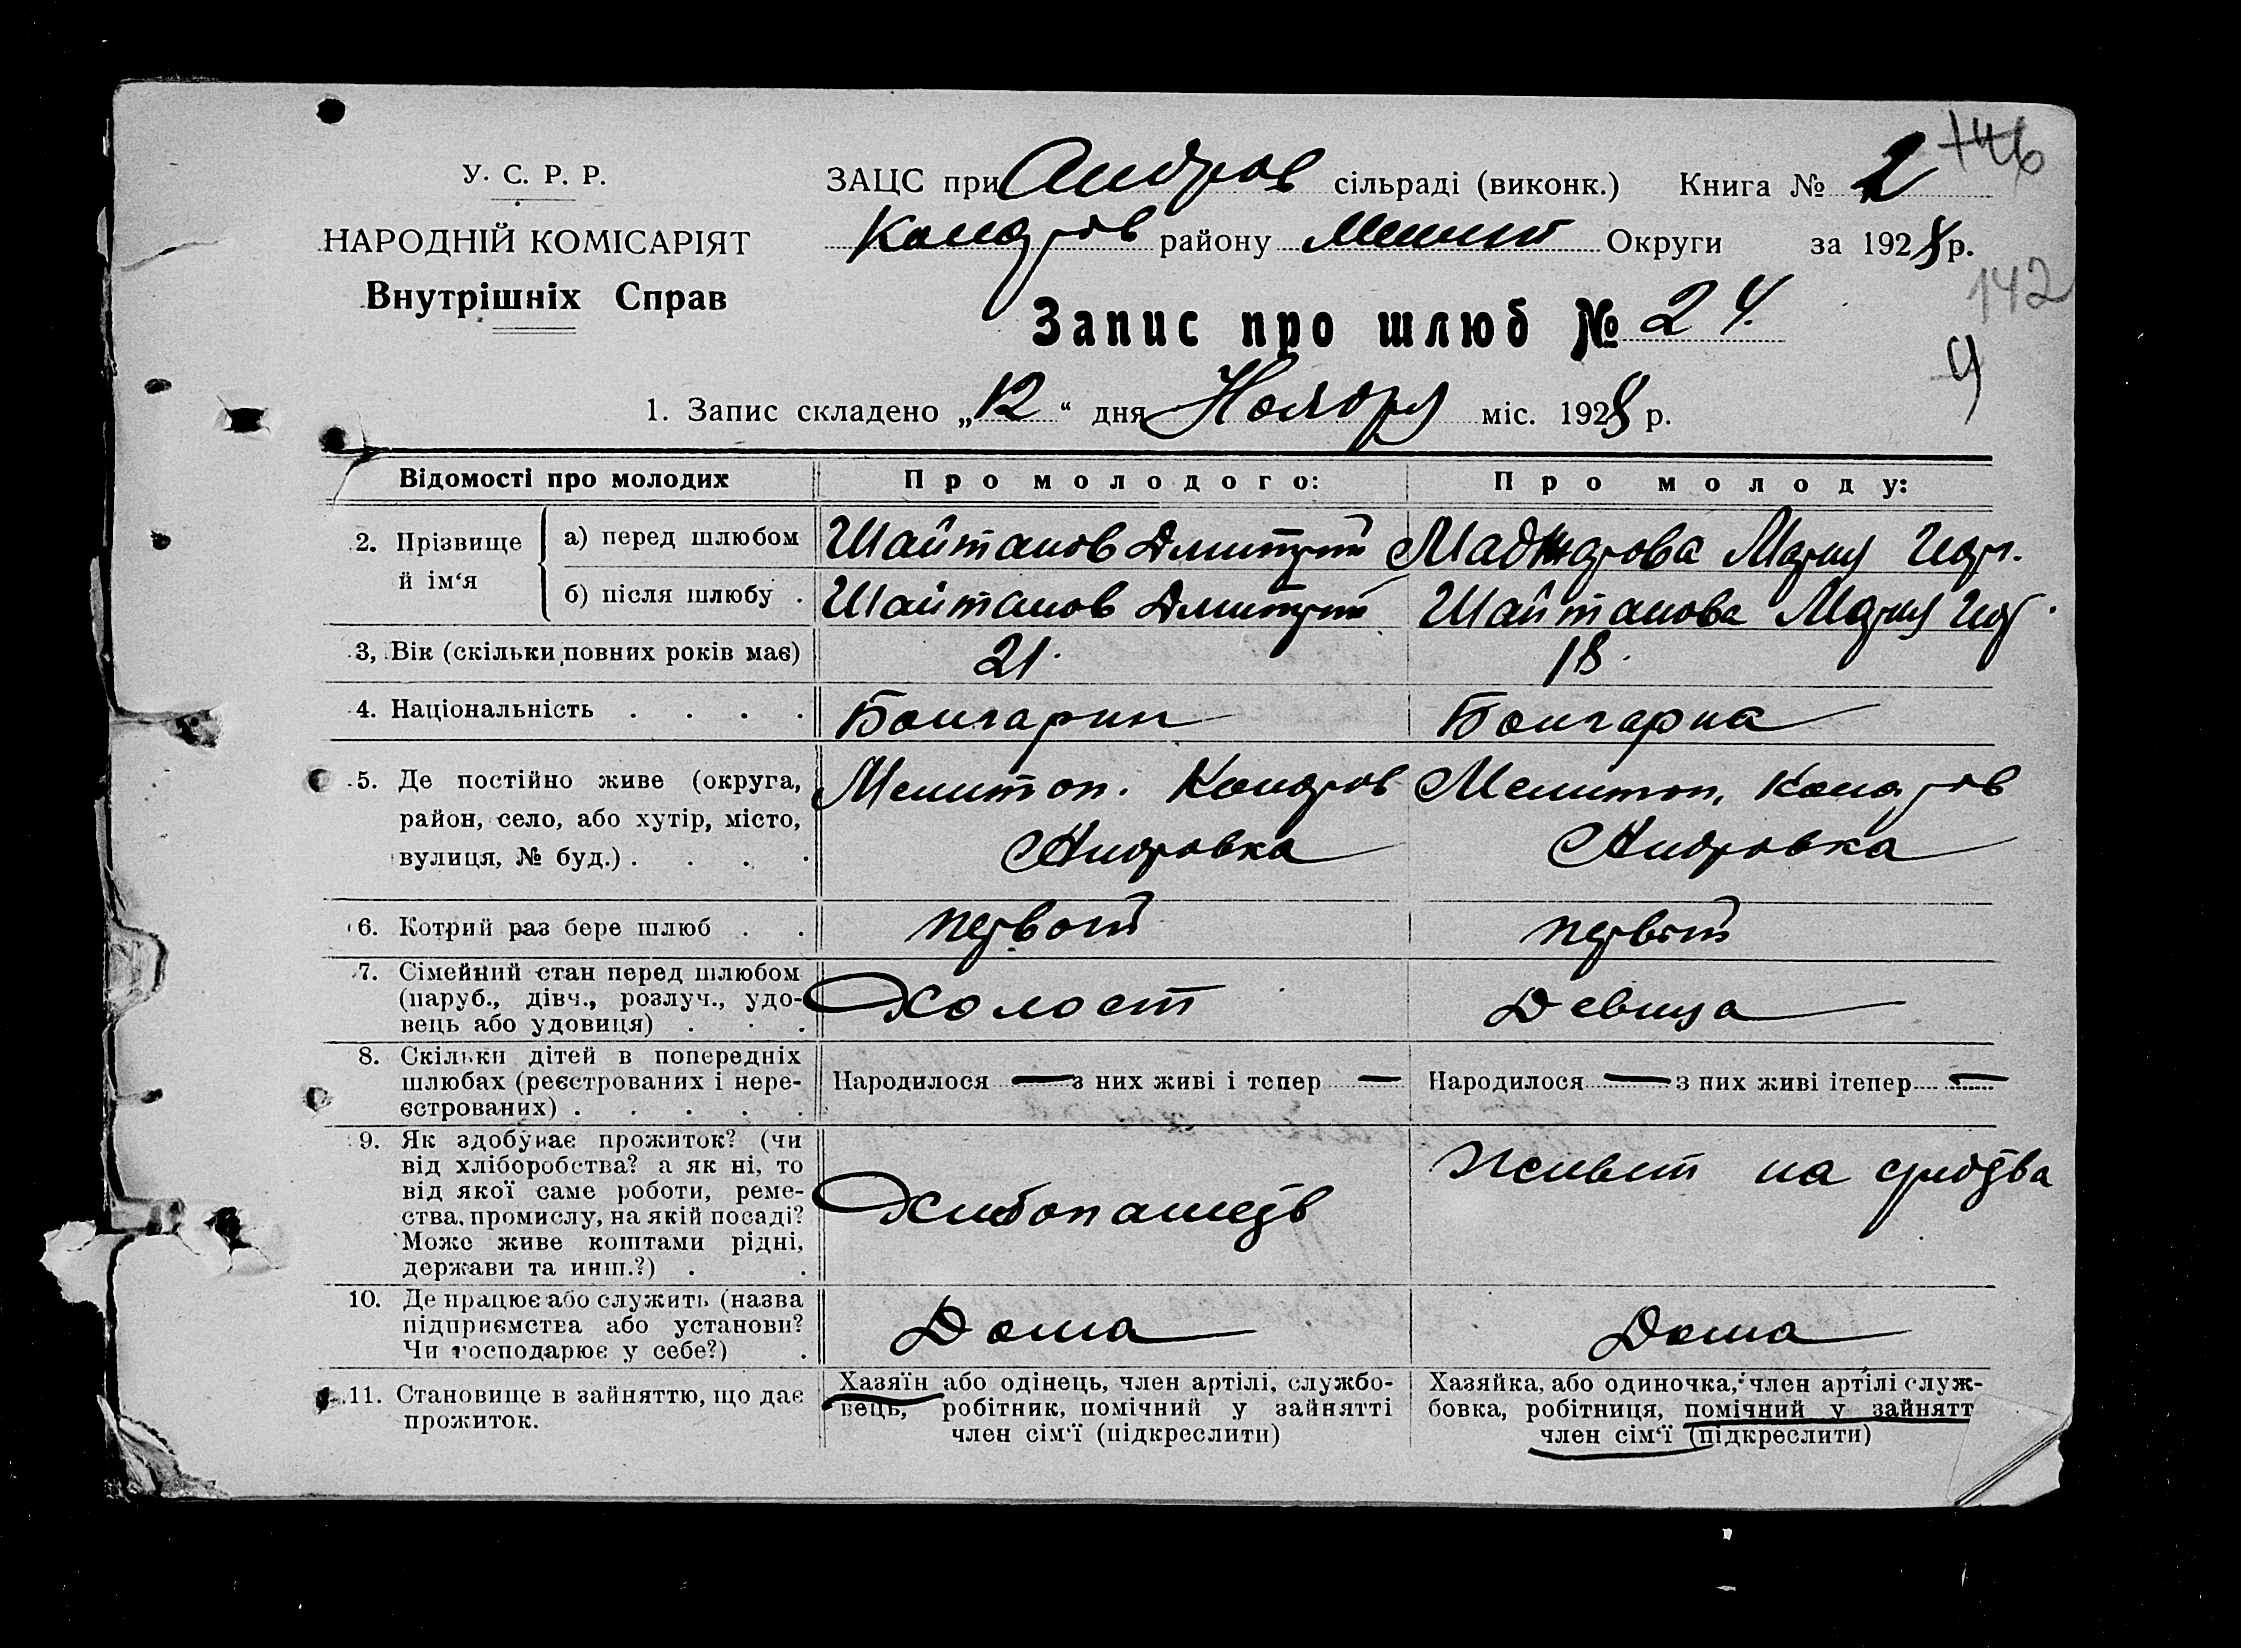 146
У. С. Р. Р.
НАРОДНІЙ КОМІСАРІЯТ
Внутрішніх Справ
ЗАЦС при Андров сільраді (виконк.) Книга № 2
району Мелит Округи за 1928 р.
142
Запис про шлюб № 24.
1. Запис складено „12“ дня Ноября міс. 1928 р.
Відомості про молодих
Про молодого:
Про молоду:
2. Прізвище й ім‘я
а) перед шлюбом
Шайтанов Дмитрий
Маджарова Мария
б) після шлюбу .
Шайтанов Дмитрий
Шайтанова Мария
3, Вік (скільки повних років має)
21.
18.
4. Національність . . . .
Болгарин
Болгарка
5. Де постійно живе (округа,
район, село, або хутір, місто,
вулиця, № буд.) . . . .
Мелитоп.
Андровка
Мелитоп.
Андровка
6. Котрий раз бере шлюб . .
первый
первый
7. Сімейний стан перед шлюбом
(паруб., дівч., розлуч., удо-
вець або удовиця) . . .
Холост
Девица
8. Скільки дітей в попередніх
шлюбах (реєстрованих і нере-
єстрованих) . . . . .
Народилося — з них живі і тепер —
Народилося — з них живі ітепер —
9. Як здобуває прожиток? (чи
від хліборобства? а як ні, то
від якої саме роботи, реме-
ства, промислу, на якій посаді?
Може живе коштами рідні,
держави та инш.?) . .
Живет на средства
10. Де працює або служить (назва
підприємства або установи?
Чи господарює у себе?) .
Дома
Дома
11. Становище в зайняттю, що дає
прожиток.
Хазяїн або одінець, член артілі, службо-
вець, робітник, помічний у зайнятті
член сім‘ї (підкреслити)
Хазяйка, або одиночка, член артілі служ-
бовка, робітниця, помічний у зайнятт
член сім‘ї (підкреслити)